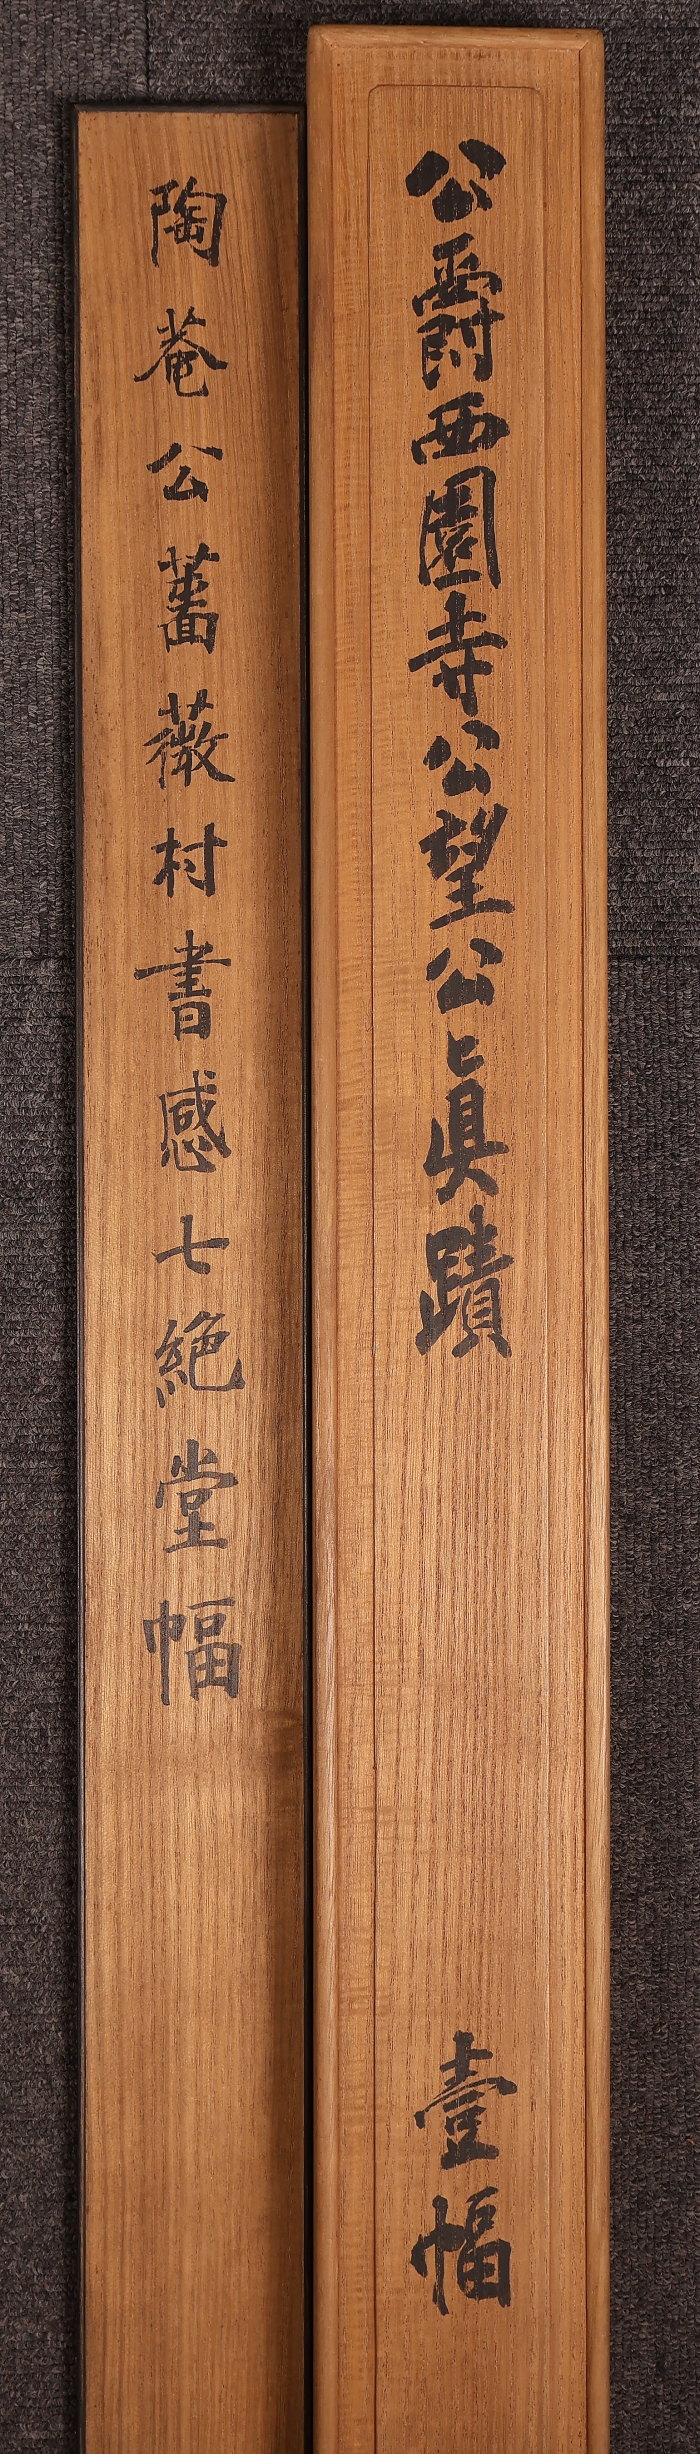 公爵西園寺公望公眞蹟 壹幅
陶菴公薔薇村書感七絶堂幅